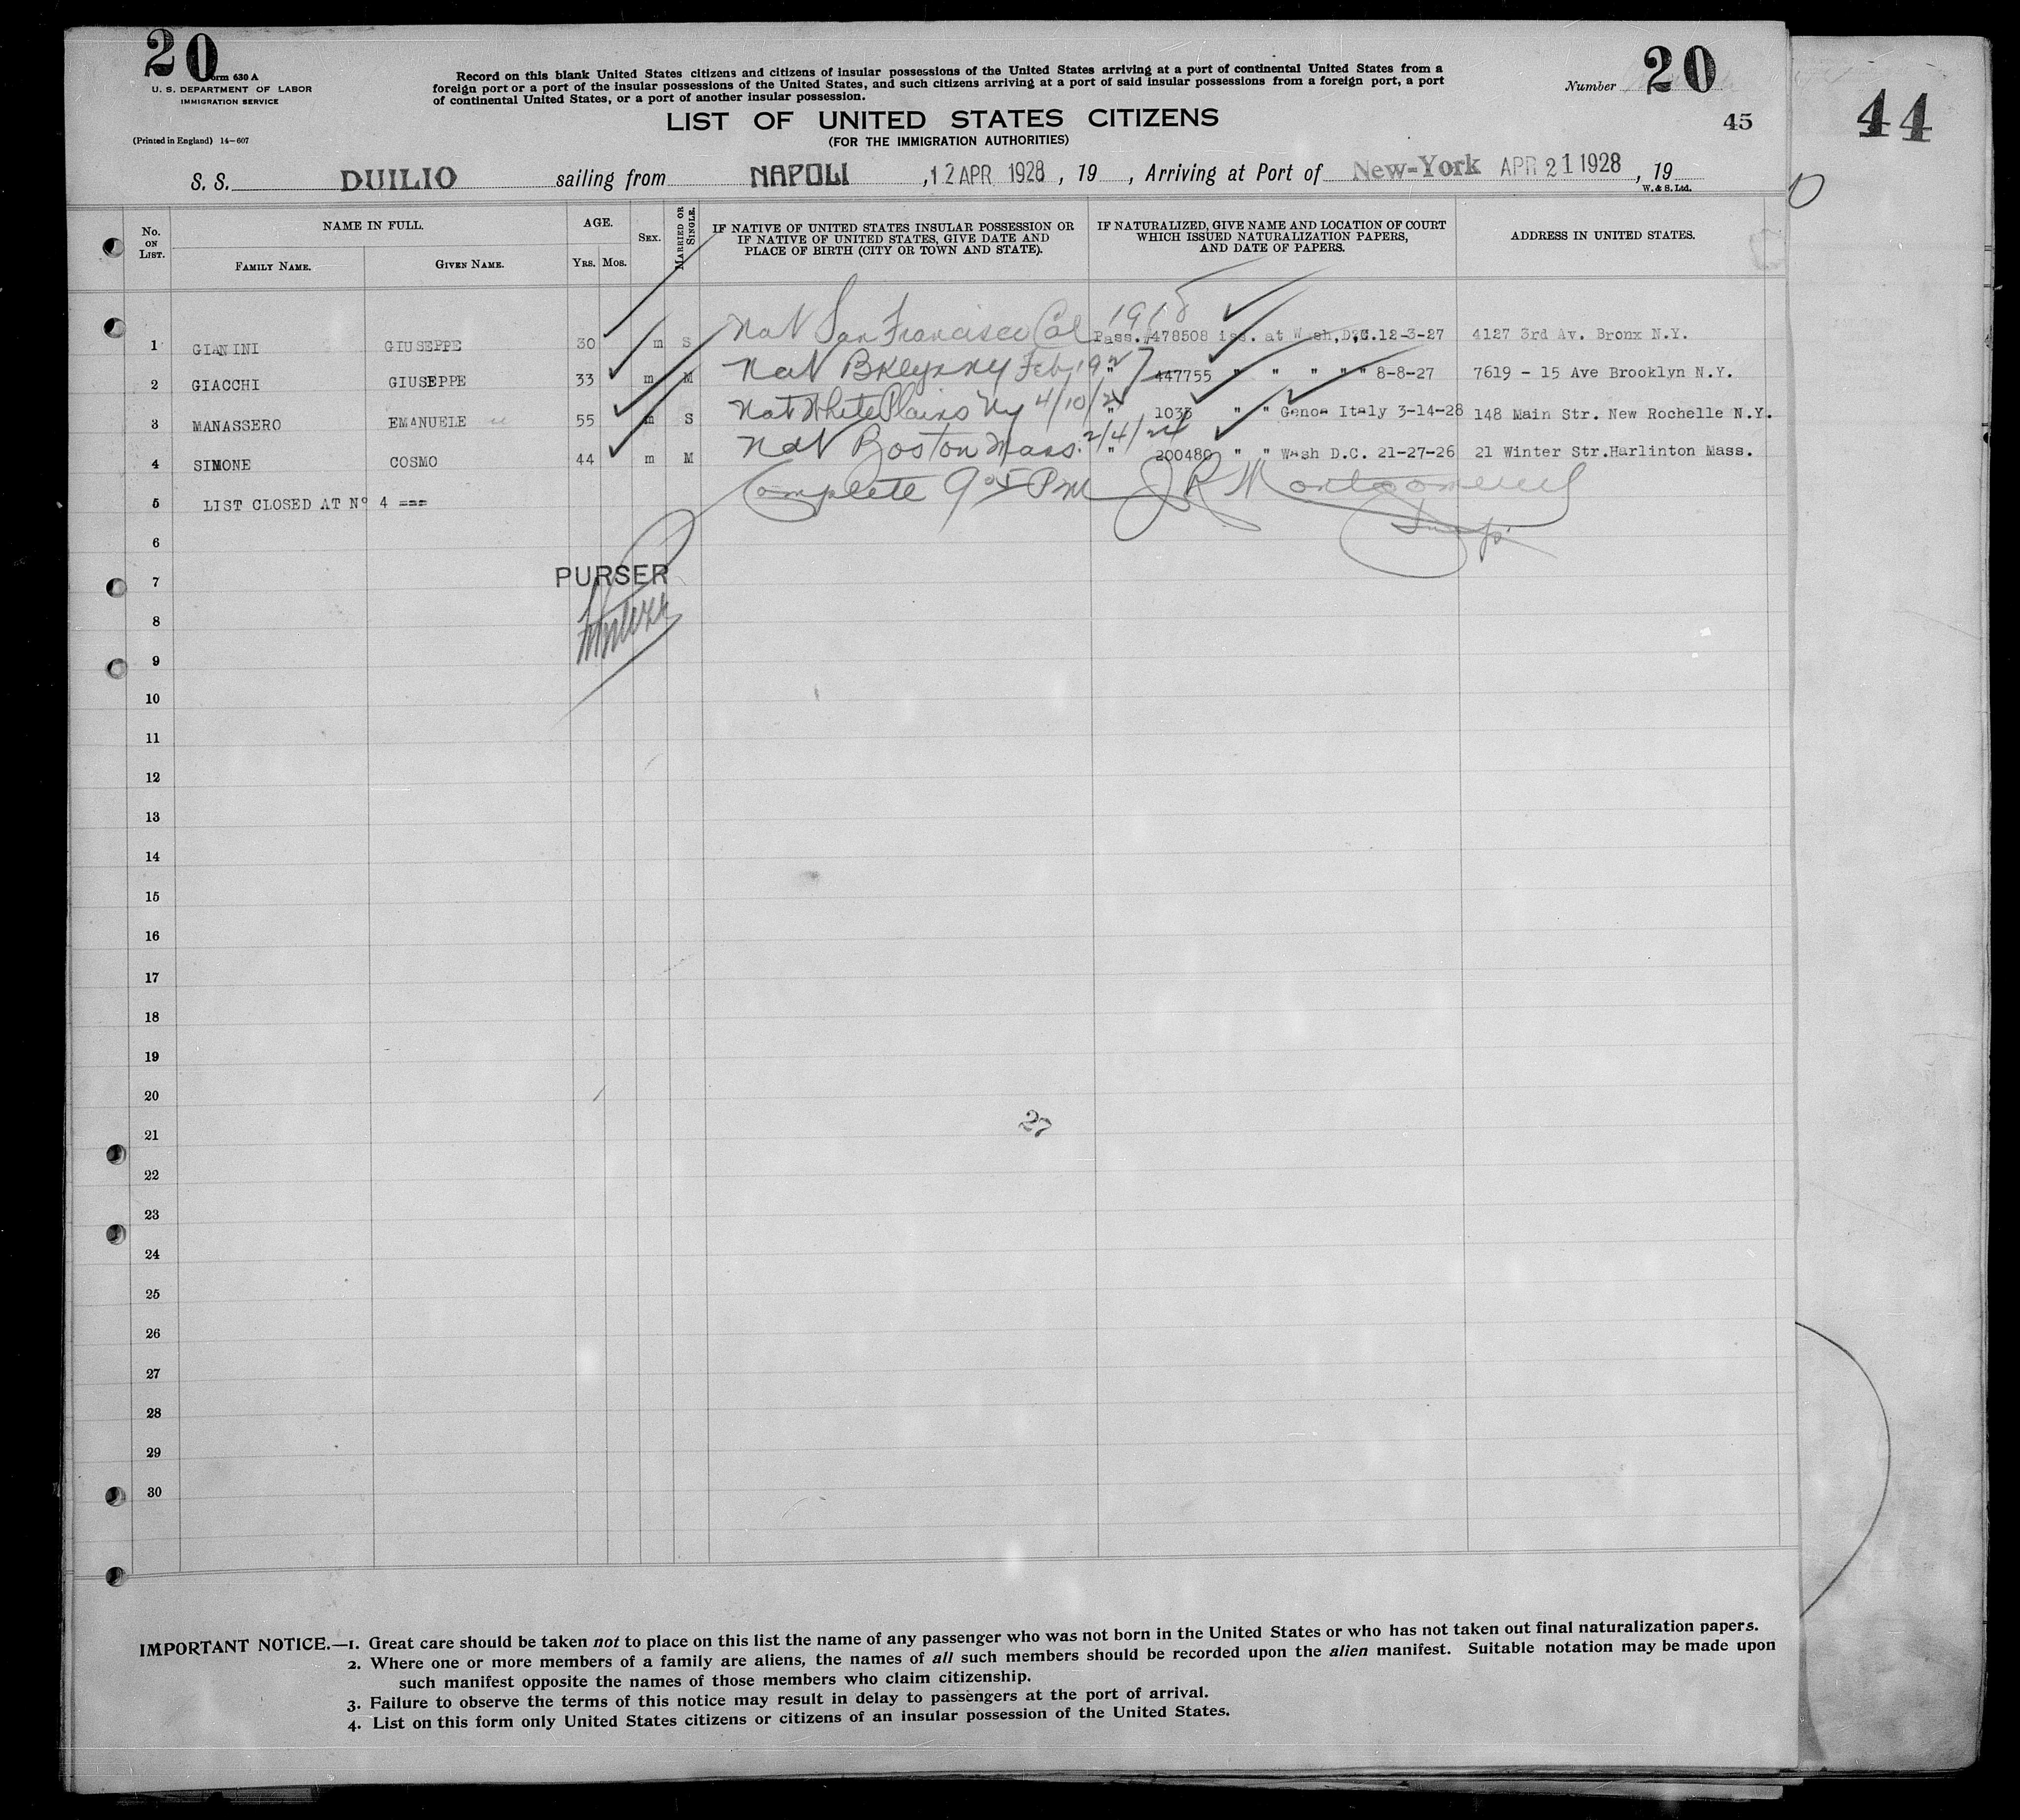 20
Form 630 A
U. S. DEPARTMENT OF LABOR
IMMIGRATION SERVICE
(Printed in England) 14—607
Record on this blank United States citizens and citizens of insular possessions of the United States arriving at a port of continental United States from a
foreign port or a port of the insular possessions of the United States, and such citizens arriving at a port of said insular possessions from a foreign port, a port
of continental United States, or a port of another insular possession.
Number 20
LIST OF UNITED STATES CITIZENS
(FOR THE IMMIGRATION AUTHORITIES)
45
44
S. S. DUILIO sailing from NAPOLI, 12 APR 1928, 19 , Arriving at Port of New-York APR 21 1928, 19
W. & S. Ltd.
No. ON LIST. NAME IN FULL. AGE. SEX. MARRIED OR SINGLE. IF NATIVE OF UNITED STATES INSULAR POSSESSION OR IF NATIVE OF UNITED STATES, GIVE DATE AND PLACE OF BIRTH (CITY OR TOWN AND STATE). IF NATURALIZED, GIVE NAME AND LOCATION OF COURT WHICH ISSUED NATURALIZATION PAPERS, AND DATE OF PAPERS. ADDRESS IN UNITED STATES.
FAMILY NAME. GIVEN NAME. YRS. MOS.
1 GIANINI GIUSEPPE 30 m S Nat San Francisco Cal 1918 Pass. 478508 iss. at Wash,D.C.12-3-27 4127 3rd Av. Bronx N.Y.
2 GIACCHI GIUSEPPE 33 m M Nat Bklyn NY Feb, 1927 " 447755 " " " " " 8-8-27 7619 - 15 Ave Brooklyn N.Y.
3 MANASSERO EMANUELE 55 m S Nat White Plains NY 4/10/ " 1033 " " Genoa Italy 3-14-28 148 Main Str. New Rochelle N.Y.
4 SIMONE COSMO 44 m M Nat Boston Mass. 2/4/24 " 200480 " " Wash D.C. 21-27-26 21 Winter Str.Harlinton Mass.
5 LIST CLOSED AT Nº 4 === Complete 9 05 PM J R Montgomery
6
7 PURSER
8
9
10
11
12
13
14
15
16
17
18
19
20
21 27
22
23
24
25
26
27
28
29
30
IMPORTANT NOTICE.—1. Great care should be taken not to place on this list the name of any passenger who was not born in the United States or who has not taken out final naturalization papers.
2. Where one or more members of a family are aliens, the names of all such members should be recorded upon the alien manifest. Suitable notation may be made upon
such manifest opposite the names of those members who claim citizenship.
3. Failure to observe the terms of this notice may result in delay to passengers at the port of arrival.
4. List on this form only United States citizens or citizens of an insular possession of the United States.